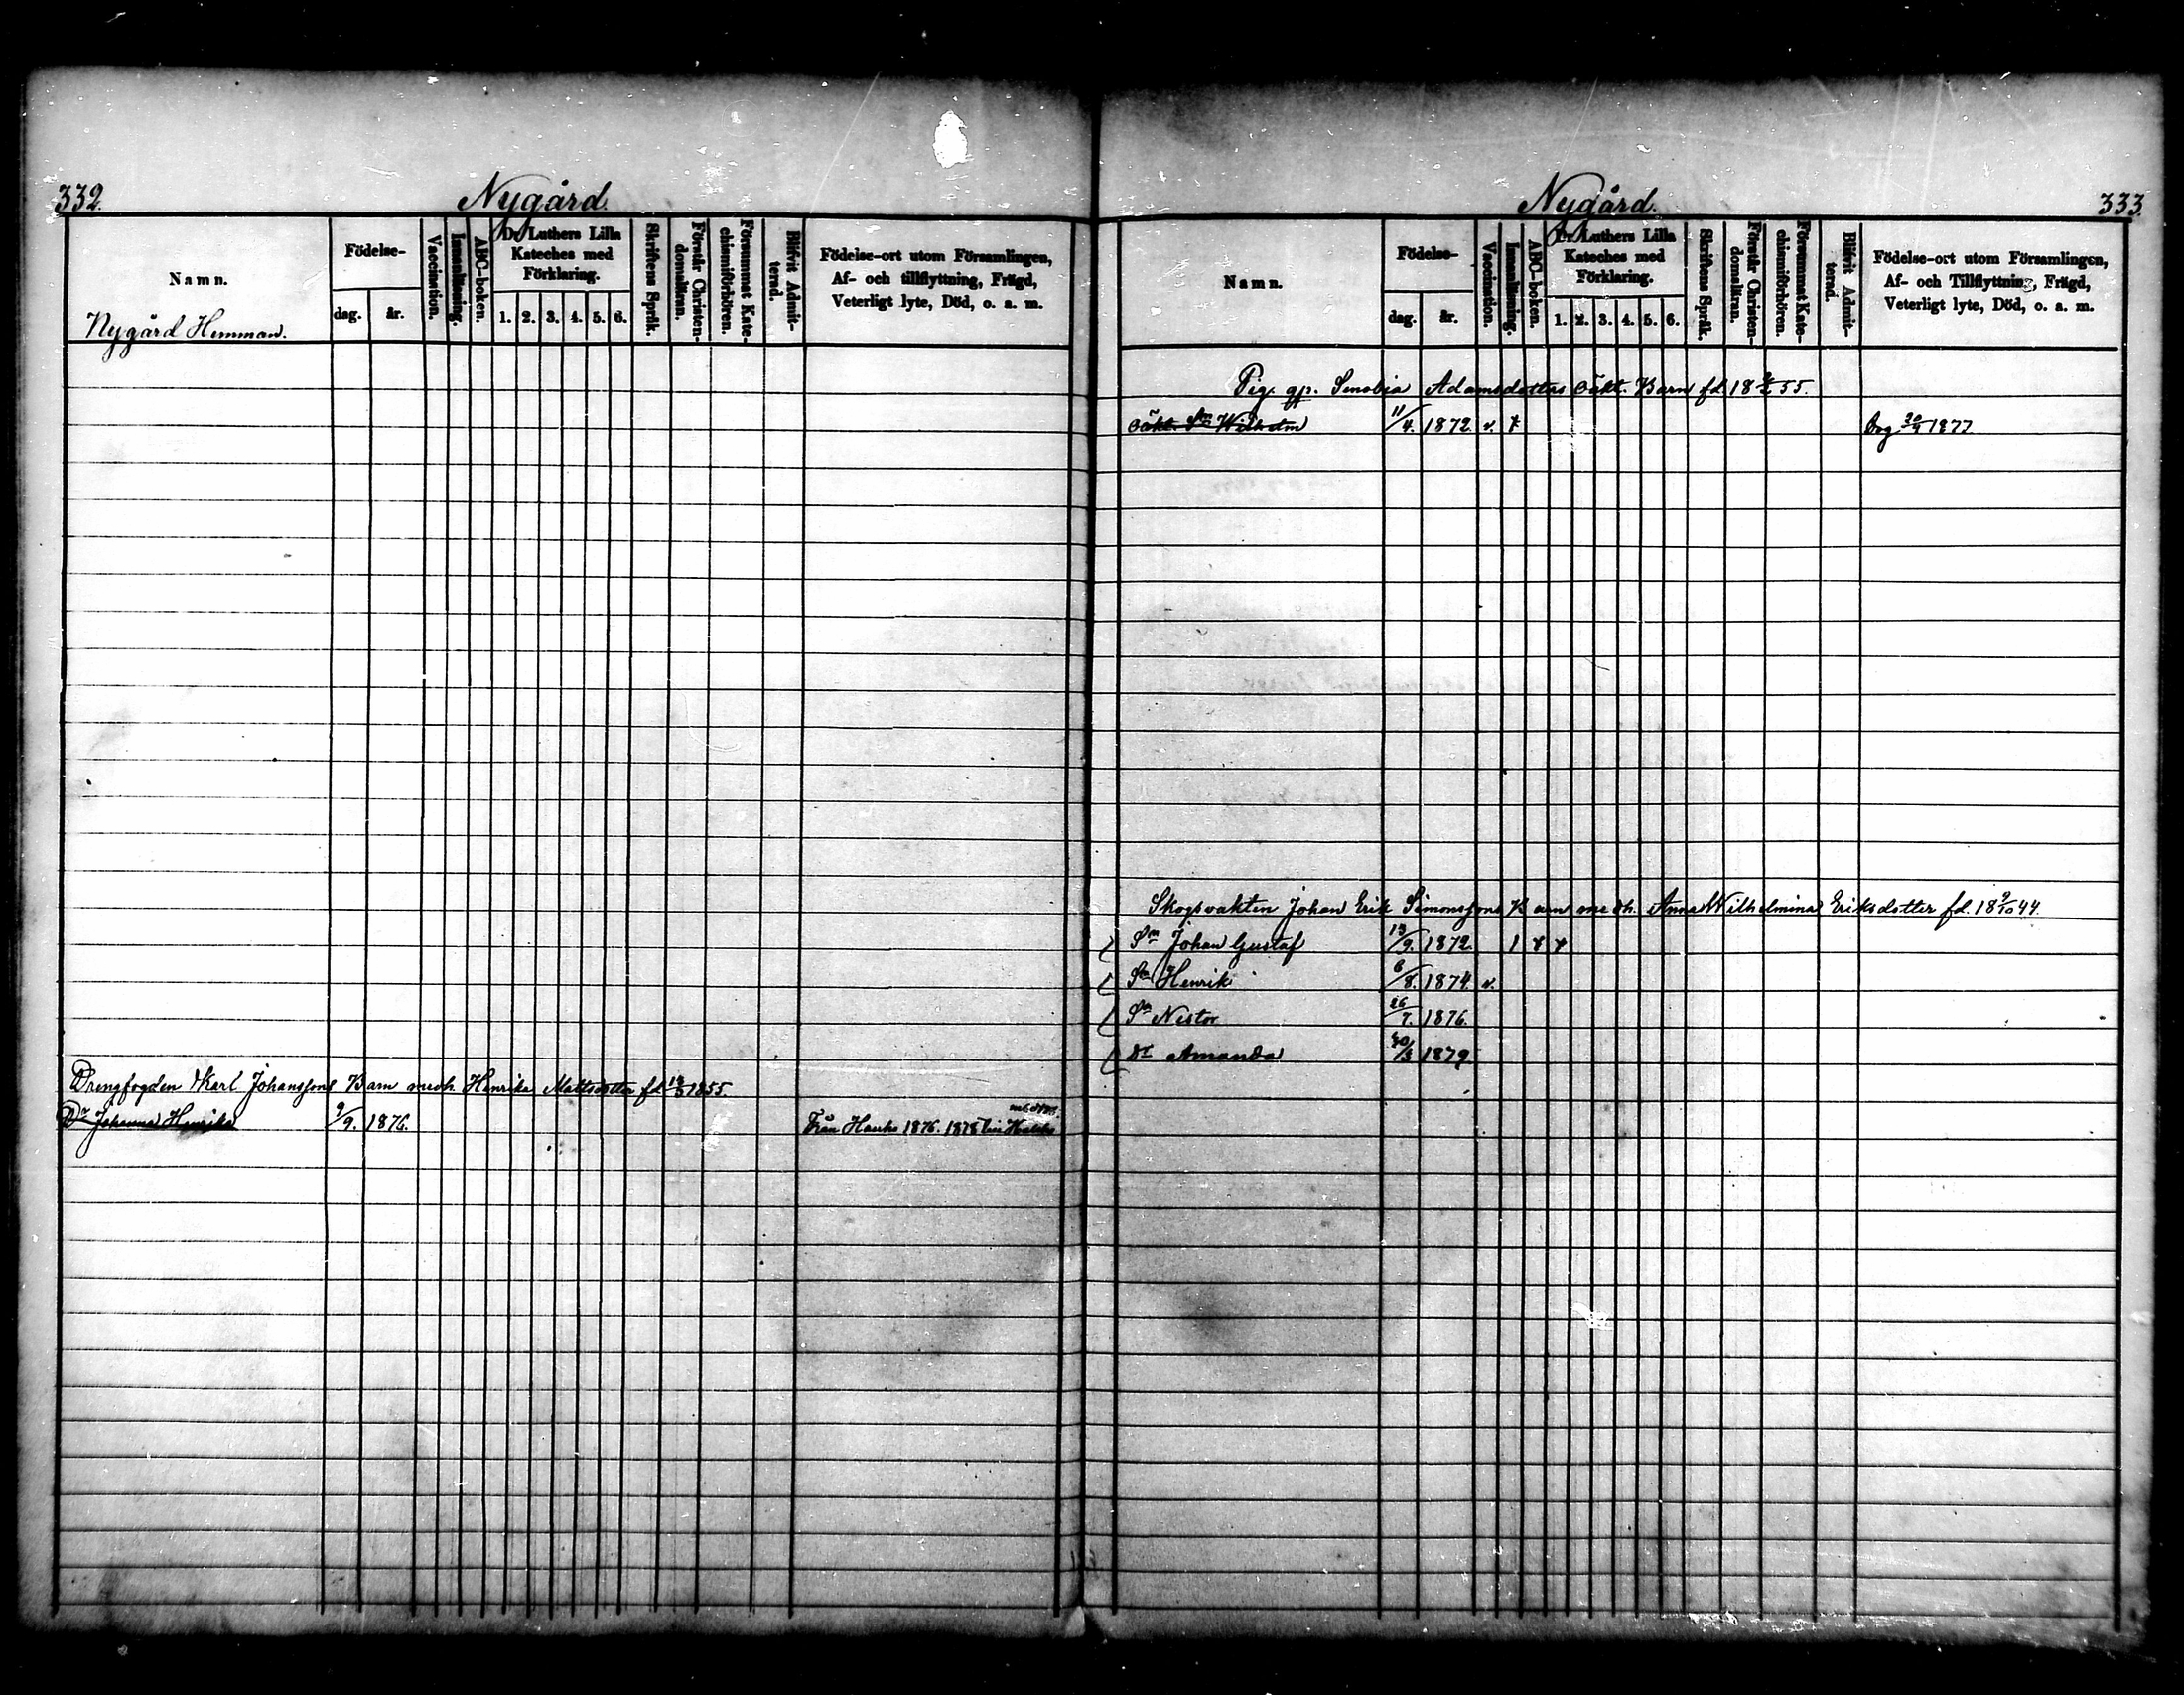 332.
Nygård.
Namn.
Födelse-
dag.
år.
Vaccination.
Innanläsning.
ABC-boken.
Dr Luthers Lilla
Kateches med
Förklaring.
1. 2. 3. 4. 5. 6.
Skriftens Språk.
Förstår Christen-
domsläran.
Försummat Kate-
chismiförhören.
Blifvit Admit-
terad.
Födelse-ort utom Församlingen,
Af- och tillflyttning, Frägd,
Veterligt lyte, Död, o. a. m.
Nygård Hemman.
Drengfogden Karl Johanssons Barn medh. Henrika Mattsdotter fd. 1855.
Dr Johanna Henrika 9/9. 1876. Från 1876. 1878 till
Nygård.
333.
Namn.
Födelse-
dag.
år.
Vaccination.
Innanläsning.
ABC-boken.
Dr Luthers Lilla
Kateches med
Förklaring.
1. 2. 3. 4. 5. 6.
Skriftens Språk.
Förstår Christen-
domsläran.
Försummat Kate-
chismiförhören.
Blifvit Admit-
terad.
Födelse-ort utom Församlingen,
Af- och Tillflyttning, Frägd,
Veterligt lyte, Död, o. a. m.
Pig. Senobia Adamsdotters oäkt. Barn fd. 18 55.
oäkt. Sn Wilhelm 11/4. 1872. v. 1877
Skogsvakten Johan Erik Simonssons Barn medh. Anna Wilhelmina Eriksdotter fd. 18 9/10 44.
Sn Johan Gustaf 13/9. 1872. 1
Sn Henrik 6/8. 1874. v.
Sn Nestor 26/7. 1876.
Dr Amanda 30/3 1879